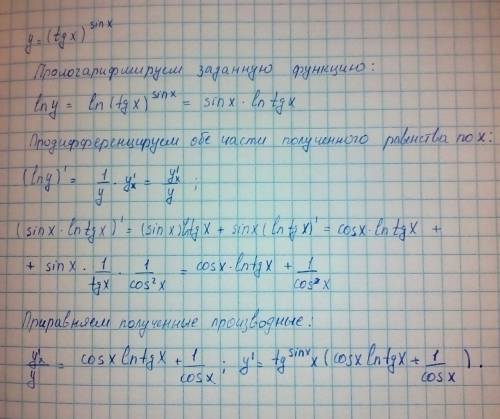 y = (tg x)^sin x
Прологарифмируем заданную функцию:
ln y = ln (tg x)^sin x = sin x · ln tg x
Продифференцируем обе части полученного равенства по x:
(ln y)' = 1/y · y'x = y'x/y ;
(sin x · ln tg x)' = (sin x)' ln tg x + sin x (ln tg x)' = cos x · ln tg x +
+ sin x · 1/tg x · 1/cos²x = cos x · ln tg x + 1/cos x
Приравняем полученные производные:
y'x/y = cos x ln tg x + 1/cos x ; y' = tg^sin x x (cos x ln tg x + 1/cos x).